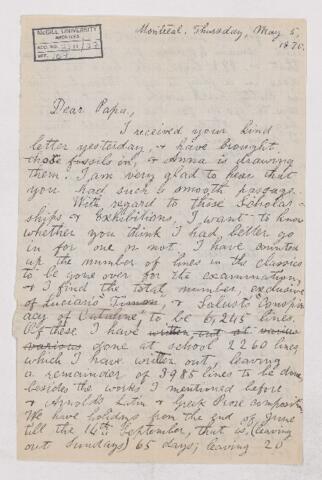 McGILL UNIVERSITY
ARCHIVES
ACC. NO.
REF.
Montreal, Thursday, May 5,
1870.
Dear Papa,
I received your kind
letter yesterday, & have brought
those fossils in, & Anna is drawing
them. I am very glad to hear that
you had such a smooth passage.
With regard to those Scholar-
ships & Exhibitions, I want to know
whether you think I had better go
in for one or not. I have counted
up the number of lines in the classics
to be gone over for the examination,
& I find the total number, exclusive
of Lucian's "Timon", & Sallust's "Conspir-
acy of Cataline", to be 6,245 lines.
Of these I have written out at various
various done at school 2260 lines
which I have written out, leaving
a remainder of 3985 lines to be done,
besides the works I mentioned before
& Arnold's Latin & Greek Prose Composition.
We have holidays from the end of June
till the 14th September, that is, (leaving
out Sundays) 65 days; leaving 20